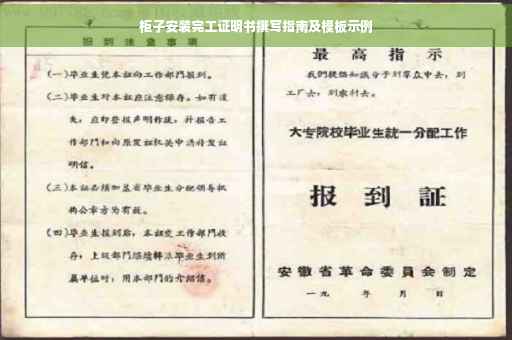 柜子安装完工证明书撰写指南及模板示例
报到注意事项
(一)毕业生凭本证向工作部门报到。
(二)毕业生对本证应注意保存。如有遗
失,应即登报声明作废,并报告工
作部门和向原发证机关申请补发证
明信。
(三)本证必须加盖省毕业生分配领导机
构公章方为有效。
(四)毕业生报到后,本证交工作部门收
存;上级部门继续转派毕业生到所
属单位时,用本部门的介绍信。
最高指示
我们提倡知识分子到群众中去,到
工厂去,到农村去。
大专院校毕业生统一分配工作
报到证
安徽省革命委员会制定
一九 年 月 日